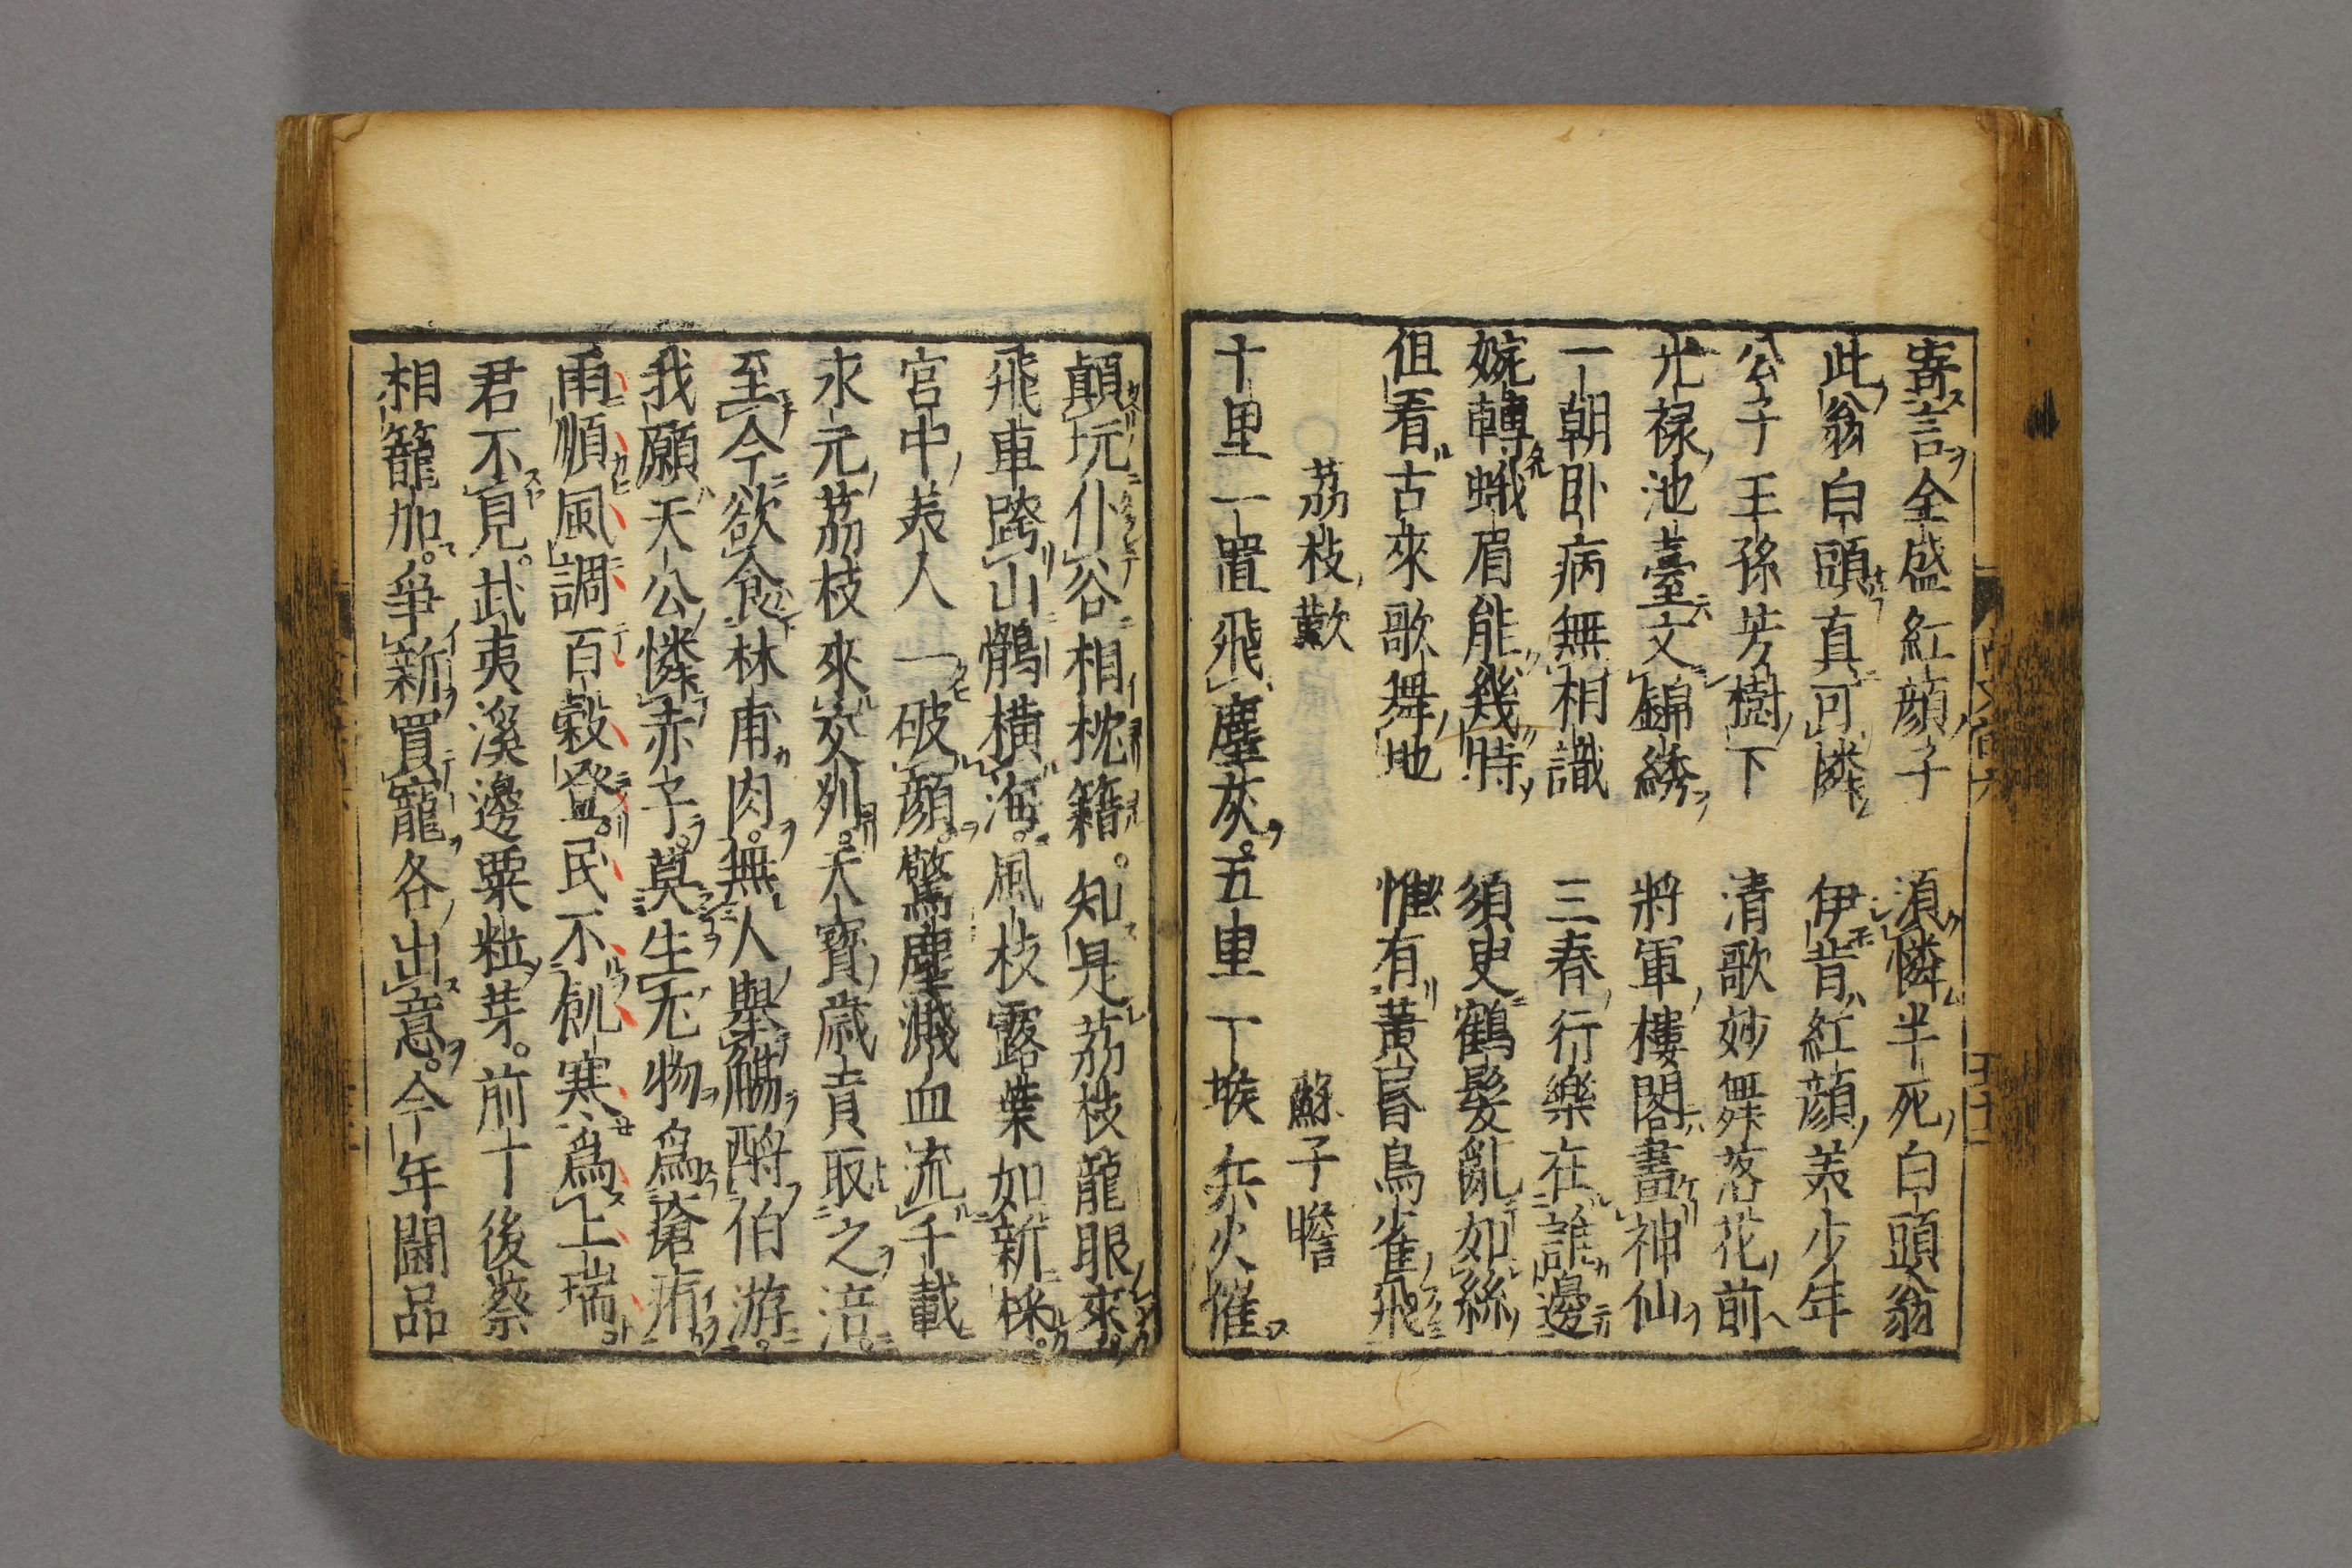 寄言全盛紅顔子 須憐半死白頭翁
此翁白頭真可憐 伊昔紅顔美少年
公子王孫芳樹下 清歌妙舞落花前
光禄池臺文錦綉 將軍樓閣畫神仙
一朝卧病無相識 三春行樂在誰邊
婉轉蛾眉能幾時 須臾鶴髮亂如絲
但看古來歌舞地 惟有黄昏鳥雀飛
荔枝歎 蘇子瞻
十里一置飛塵灰。五里一堠兵火催。
顛坑仆谷相枕籍。知是荔枝龍眼來。
飛車跨山鶻横海。風枝露葉如新採。
宮中美人一破顔。驚塵濺血流千載
永元荔枝來交州。天寶歳貢取之涪。
至今欲食林甫肉。無人舉觴酹伯游。
我願天公憐赤子。莫生尤物爲瘡痏
雨順風調百穀登。民不飢寒爲上瑞
君不見。武夷溪邊粟粒芽。前丁後蔡
相籠加。爭新買寵各出意。今年鬪品